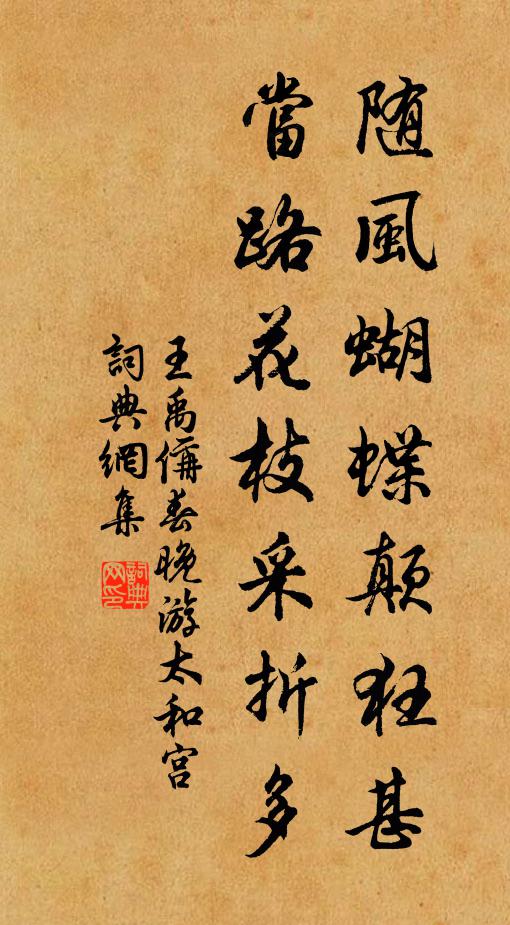 随風蝴蝶颠狂甚
當路花枝采折多
王禹偁春晚游太和宫
詞典網集
詞典網印